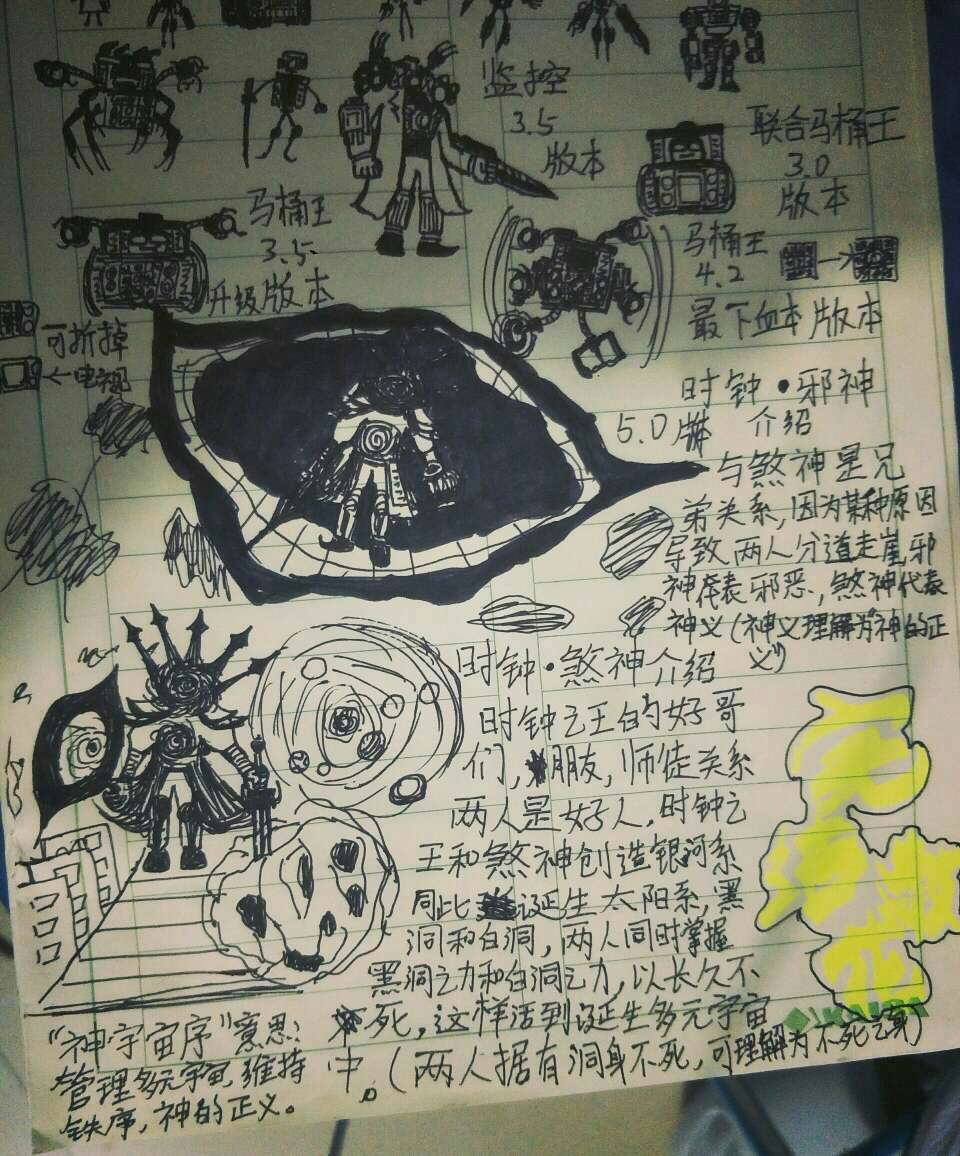 监控
3.5
版本
联合马桶王
3.0
版本
马桶王
3.5
升级版本
马桶王
4.2
最下血本版本
可折掉
←电视
时钟·邪神
5.0版本 介绍
与煞神是兄
弟关系,因为某种原因
导致两人分道走崖,邪
神代表邪恶,煞神代表
神义(神义理解为"神的正
义")
时钟·煞神介绍
时钟之王的好哥
们,朋友,师徒关系
两人是好人,时钟之
王和煞神创造银河系
同此诞生太阳系,黑
洞和白洞,两人同时掌握
黑洞之力和白洞之力,以长久不
死,这样活到诞生多元宇宙
中。(两人据有洞身不死,可理解为不死之身)
"神宇宙序"意思:
管理多元宇宙,维持
铁序,神的正义。